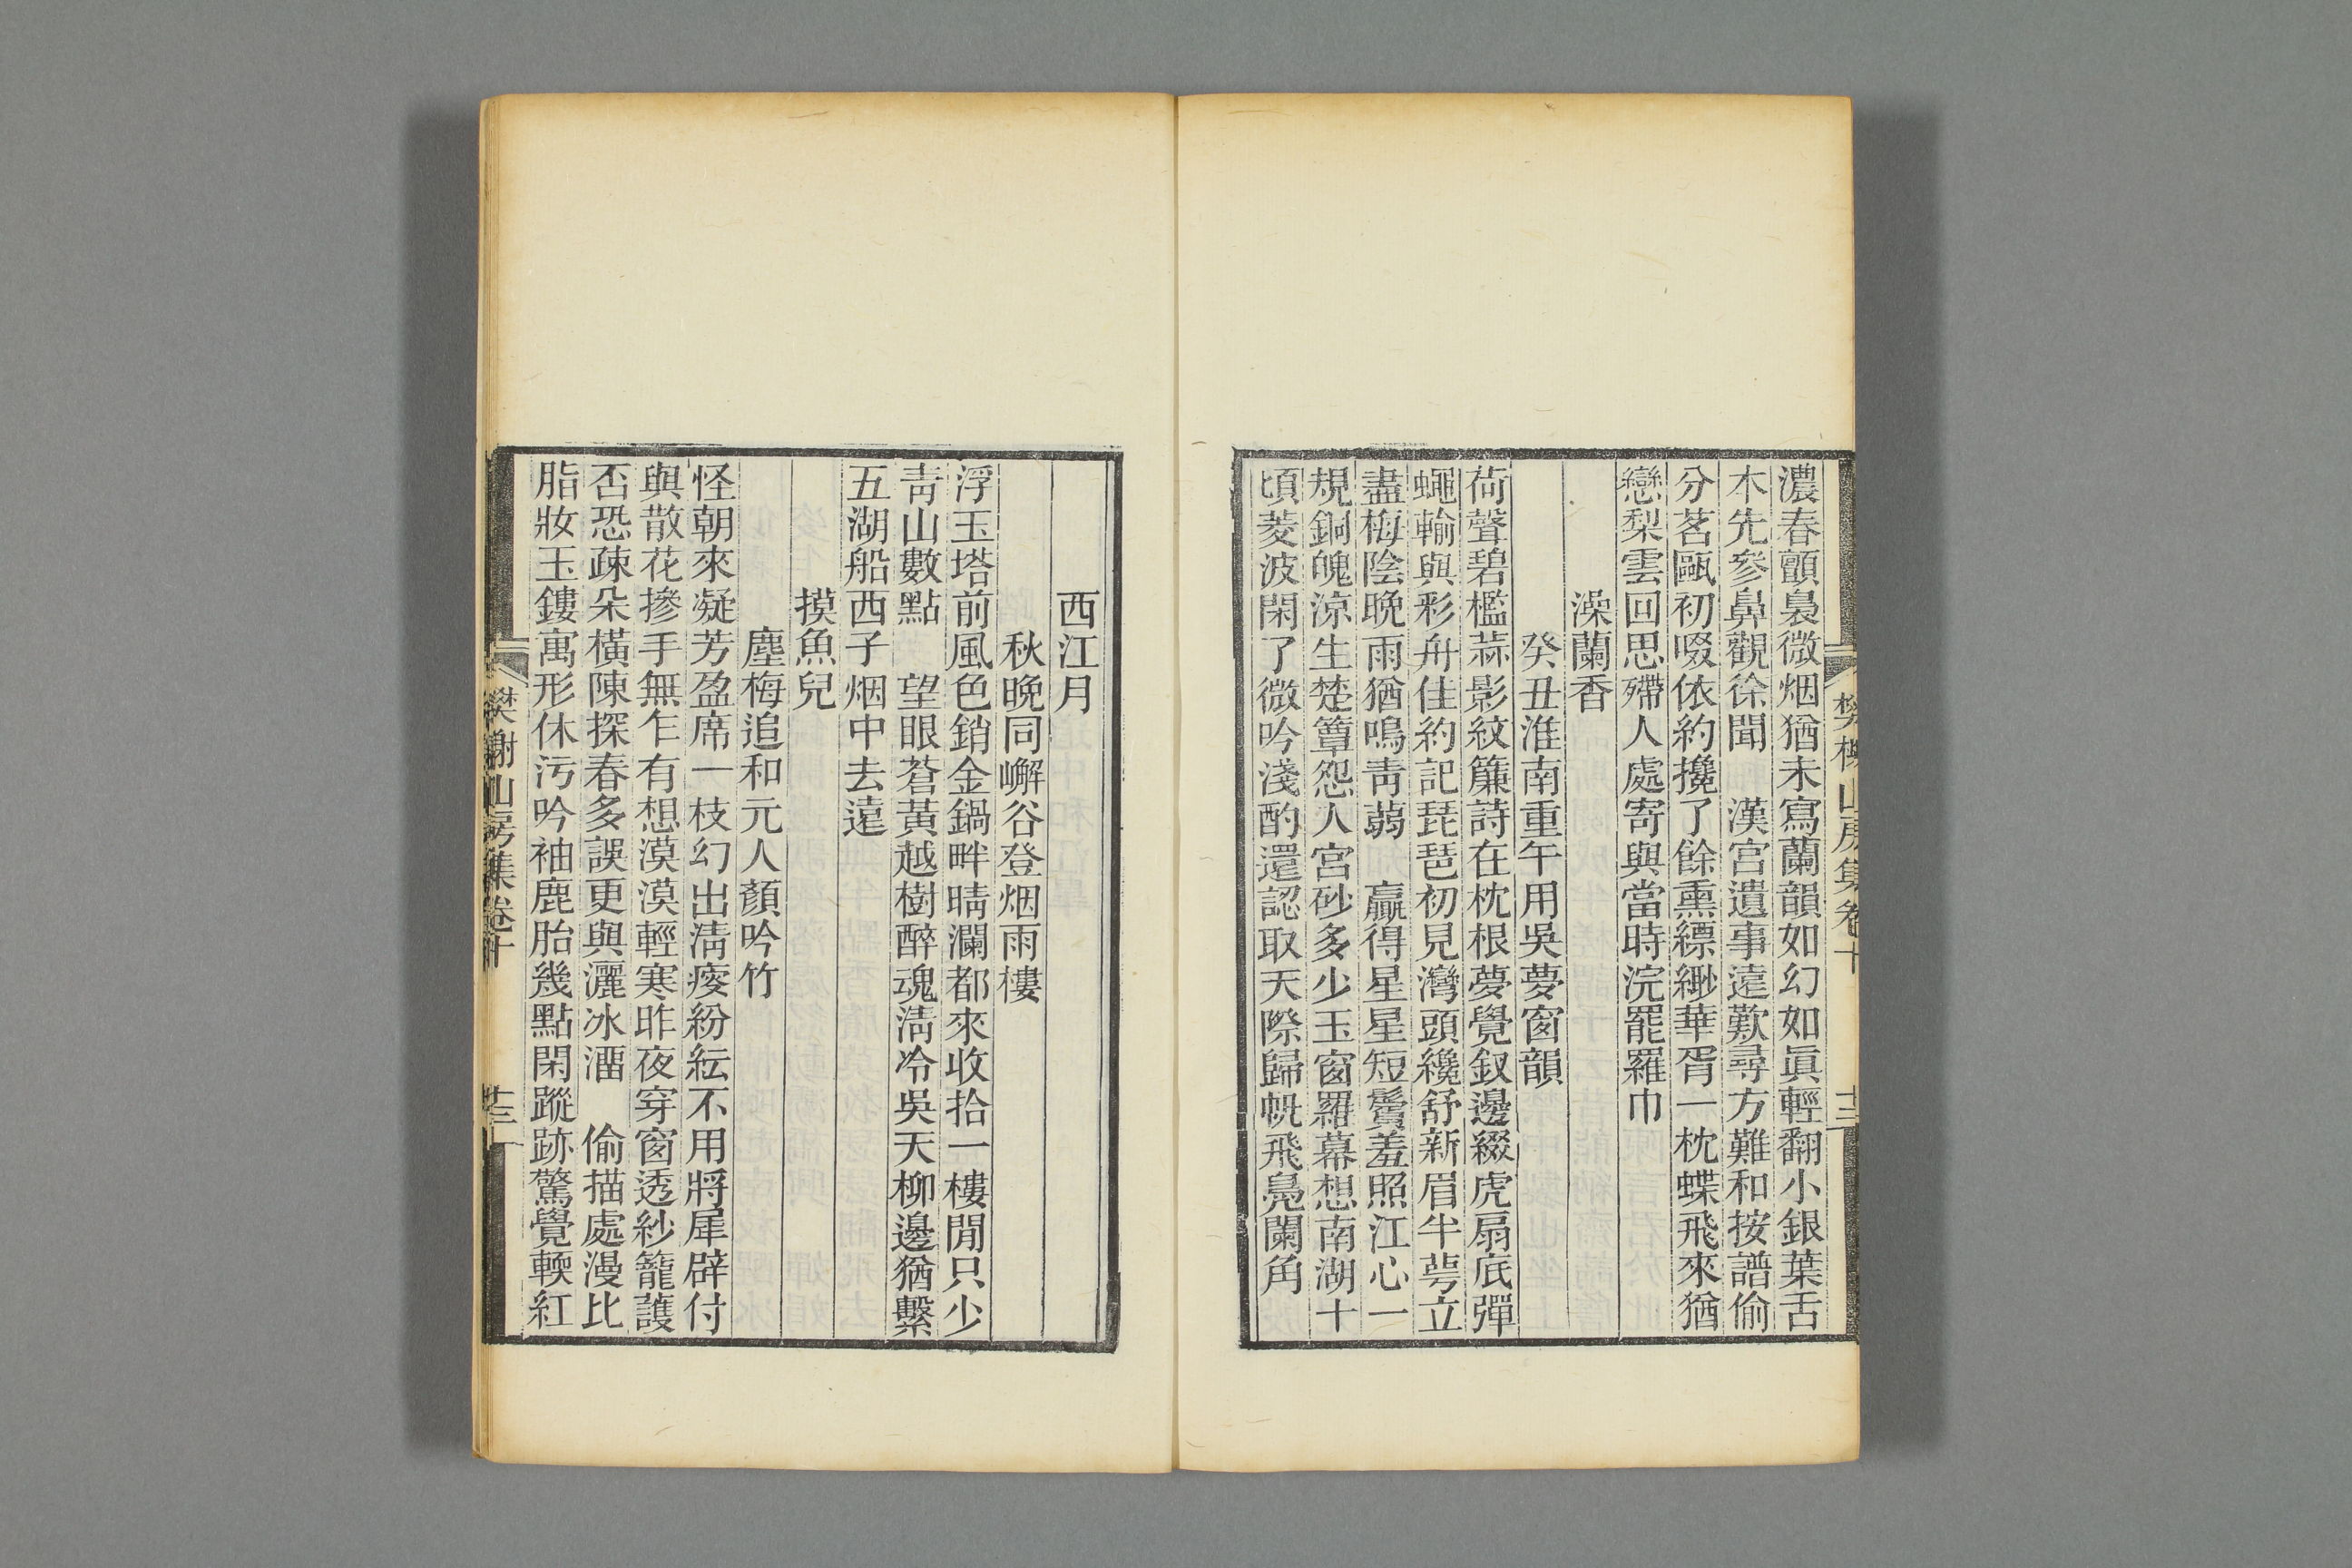 樊榭山房集卷十
十二
濃春顫裊微烟猶未寫蘭韻如幻如眞輕翻小銀葉舌
木先參鼻觀徐聞　漢宮遺事遠歎尋方難和按譜偷
分茗甌初啜依約攙了餘熏縹緲華胥一枕蝶飛來猶
戀梨雲回思殢人處寄與當時浣罷羅巾
澡蘭香
癸丑淮南重午用吳夢窗韻
荷聲碧檻蒜影紋簾詩在枕根夢覺釵邊綴虎扇底彈
蠅輸與彩舟佳約記琵琶初見灣頭纔舒新眉半萼立
盡梅陰晚雨猶鳴靑蒻　贏得星星短鬢羞照江心一
規銅魄涼生楚簟怨人宮砂多少玉窗羅幕想南湖十
頃菱波閑了微吟淺酌還認取天際歸帆飛鳧闌角
西江月
秋晚同嶰谷登烟雨樓
浮玉塔前風色銷金鍋畔晴瀾都來收拾一樓閒只少
靑山數點　望眼蒼黃越樹醉魂淸冷吳天柳邊猶繫
五湖船西子烟中去遠
摸魚兒
塵梅追和元人顏吟竹
怪朝來凝芳盈席一枝幻出淸瘦紛紜不用將犀辟付
與散花摻手無乍有想漠漠輕寒昨夜穿窗透紗籠護
否恐疎朵橫陳探春多誤更與灑冰溜　偷描處漫比
脂妝玉鏤寓形休污吟袖鹿胎幾點閑蹤跡驚覺輭紅
樊榭山房集卷十
十三